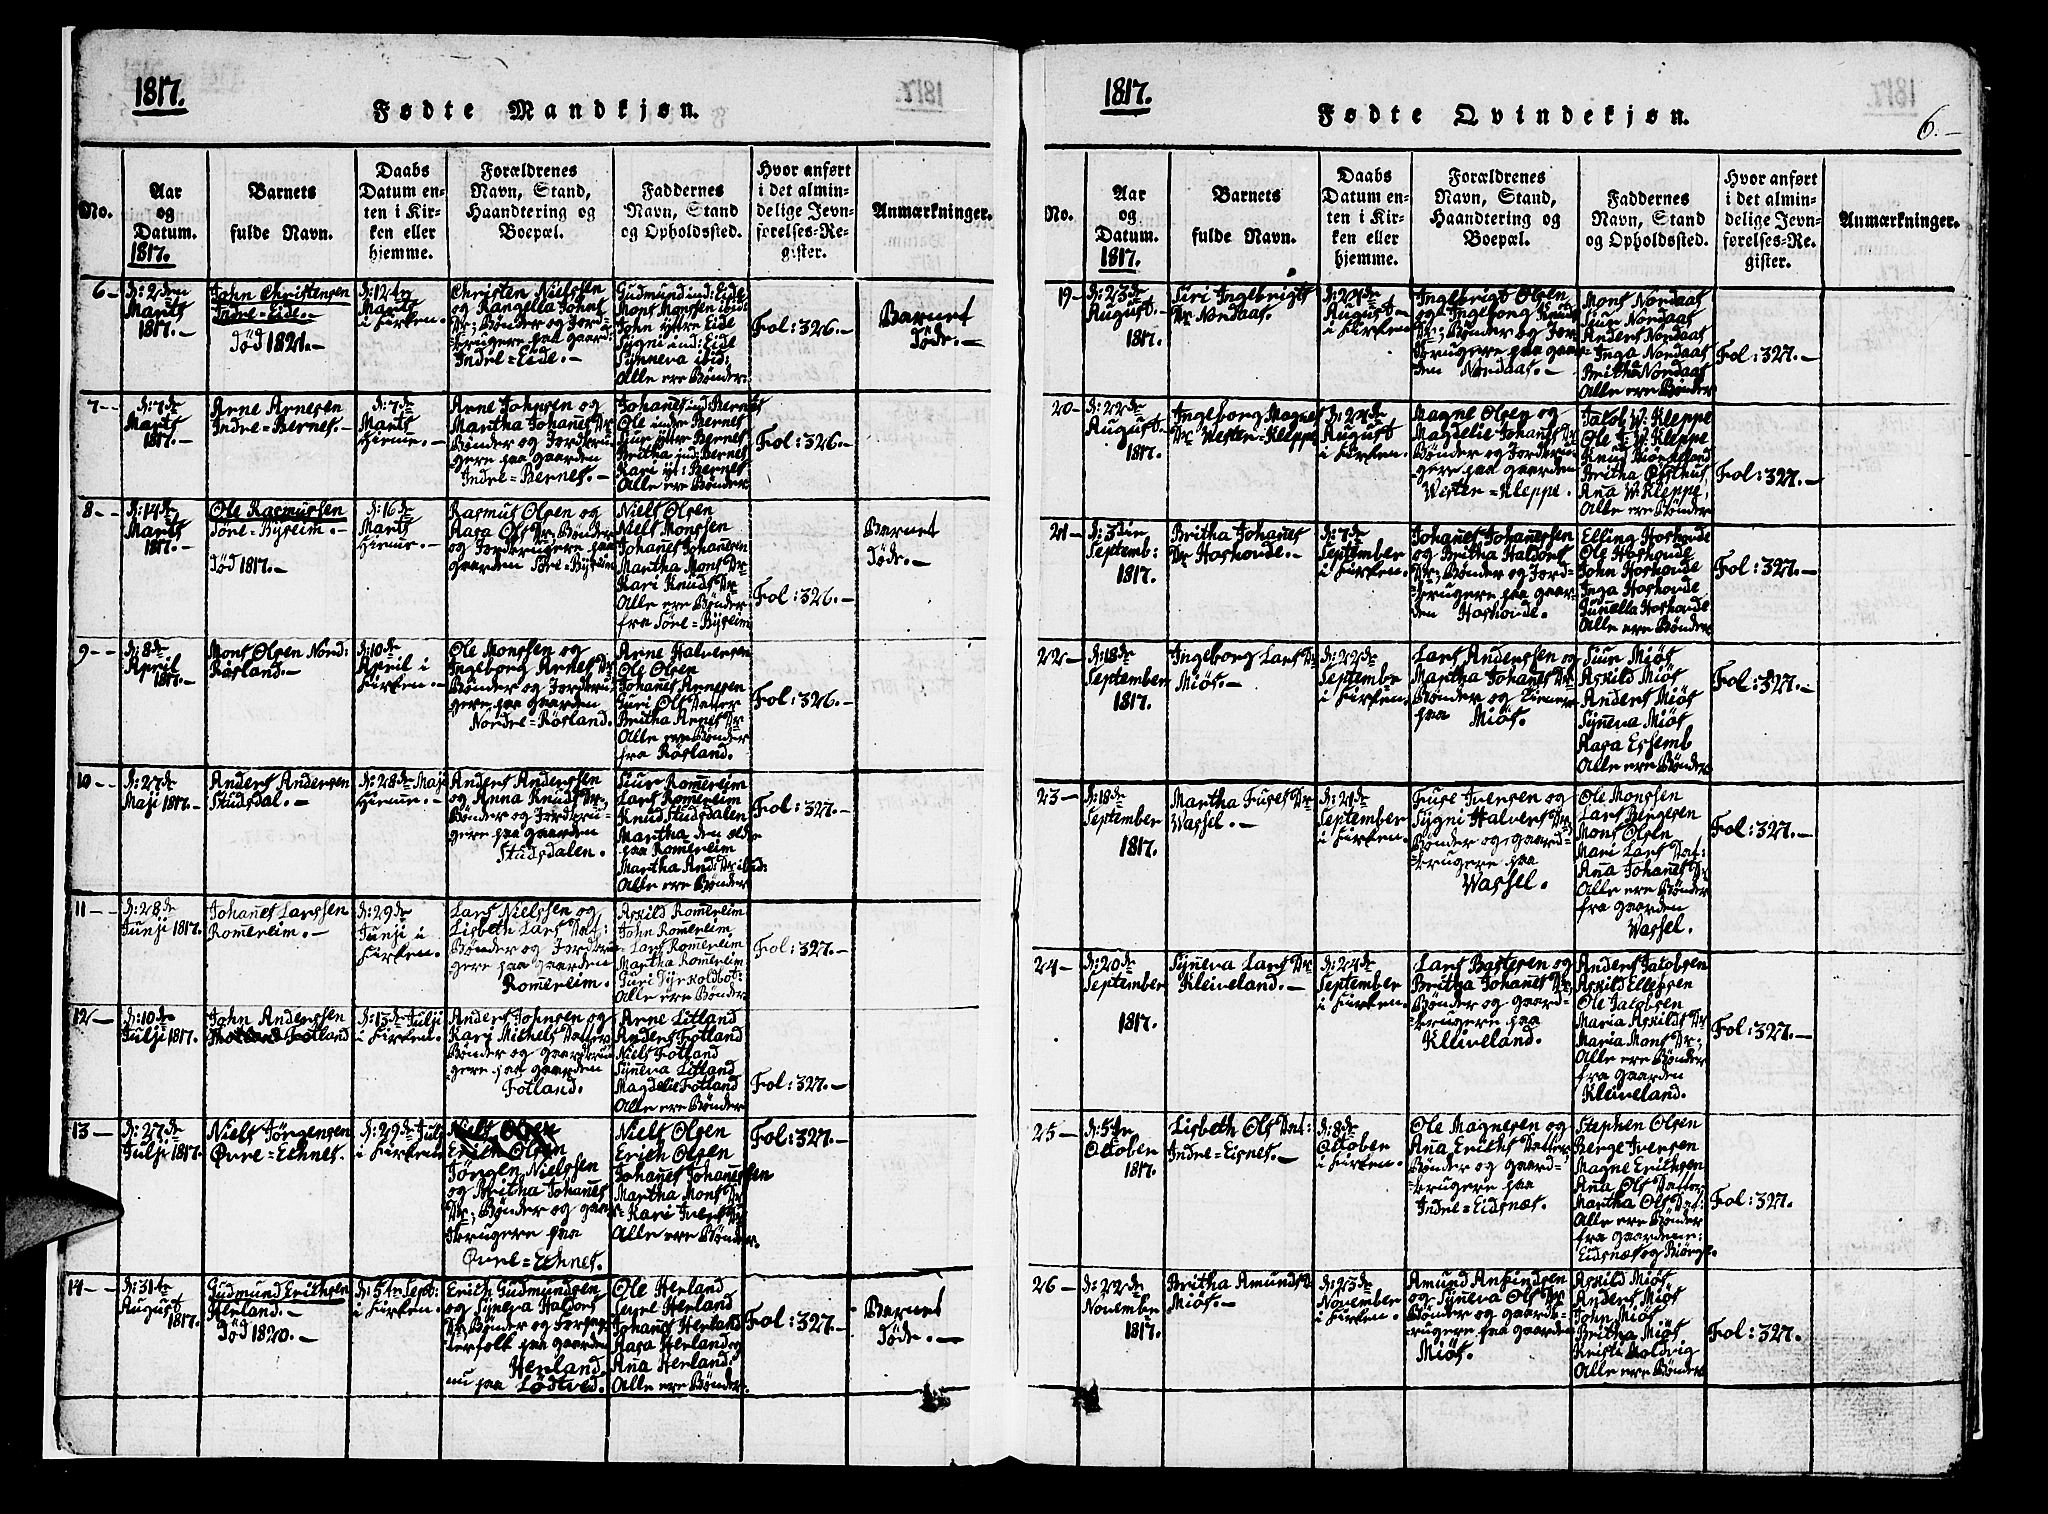 1817.
Fødte Mandkjøn.
No.
Aar
og
Datum.
1817.
Barnets
fulde Navn.
Daabs
Datum en-
ten i Kir-
ken eller
hjemme.
Forældrenes
Navn, Stand,
Haandtering og
Boepæl.
Faddernes
Navn, Stand
og Opholdssted.
Hvor anført
i det almin-
delige Jevn-
førelses-Re-
gister.
Anmærkninger.
6-
d: 2den
Marts
1817.-
John Christensen
Indre=Eide.-
Død 1821.-
d: 12te
Marts
i Kirken.-
Christen Nielssen
og Rangella Johns
Dr; Bønder og Jord-
brugere paa gaard:
Indre=Eide.-
Gudmund ind: Eide
Mons Monssen ibid:
John yttre Eide
Sygni ind: Eide
Synneva ibid:
Alle ere Bønder.
Fol: 326.-
Barnet
Døde.-
7--
d: 7de
Marts
1817.-
Arne Arnesen
Indre=Bernes.-
d: 7de
Marts
Hieme.-
Arne Johnsen og
Martha Johanes Dr
Bønder og Jordbru-
gere paa gaarden
Indre=Bernes.-
Johanes ind: Bernes
Ole indre Bernes
Siur yttre Bernes
Britha ind: Bernes
Kari yt: Bernes
Alle ere Bønder
Fol: 326.-
8--
d: 14de
Marts
1817.-
Ole Rasmussen
Søre=Byseim.-
Død 1817.-
d: 16de
Marts
Hieme.-
Rasmus Olsen og
Aasa Ols Dr. Bønder
og Jordbrugere paa
gaarden Søre=Byseim
Niels Olsen
Niels Monssen
Johanes Johanesen
Martha Mons Dr
Kari Knuds Dr
Alle ere Bønder
fra Søre=Byseim
Fol: 326.-
Barnet
Døde.-
9--
d: 8de
April
1817.-
Mons Olsen Nord:
Røsland.-
d: 10de
April i
Kirken.-
Ole Monssen og
Ingeborg Arnes Dr
Bønder og Jordbru-
gere paa gaarden
Nordre=Røsland.
Arne Halversen
Ole Olsen
Johanes Arnesen
Guri Ols Datter
Britha Arnes Dr
Alle ere Bønder
fra Røsland.
Fol: 326.-
10-
d: 27de
Maji 1817.-
Anders Andersen
Studsdal.-
d: 28de Maji
Hieme.-
Anders Anderssen
og Anna Knuds Dr;
Bønder og Jordbru-
gere paa gaarden
Studsdalen.
Siur Romereim
Lars Romereim
Knud Studsdalen
Martha den eldr
paa Romereim
Martha And: Dr ibid:
Alle ere Bønder
Fol: 327.-
11--
d: 28de
Junji 1817.
Johanes Larssen
Romereim.-
d: 29de
Junji i
Kirken.-
Lars Nielssen og
Lisbeth Lars Dat:
Bønder og Jordbru
gere paa gaarden
Romereim.
Askild Romereim
John Romereim
Lars Romereim
Martha Romereim
Guri
Alle ere Bønder
Fol: 327.-
12-
d: 10de
Julji 1817.
John Anderssen
Fotland
d: 13de Julji
i Kirken.-
Anders Johnsen og
Kari Mithels Datter
Bønder og gaardbru
gere paa gaarden
Fotland.
Arne Litland
Anders Fotland
Niels Fotland
Syneva Litland
Magdelie Fotland
Alle ere Bønder
Fol: 327.-
13-
d: 27de
Julji 1817.
Niels Jørgensen
Øvre=Echnes.-
d: 29de Julji
i Kirken.
Niels Olsen
Erich Olsen
Jørgen Nielssen
og Britha Johanes
Dr; Bønder og gaar
brugere paa
Øvre=Echnes.
Niels Olsen
Erich Olsen
Johanes Johanessen
Martha Mons Dr
Kari Ivers Dr
Alle ere Bønder.
Fol: 327.-
14-
d: 31te
August
1817.
Gudmund Erichsen
Herland.-
Død 1820.-
d: 5te Sept:
i Kirken.-
Erich Gudmundsen
og Syneva Haldors
Dr; Bønder og
folk paa gaarden
Herland.
nu paa Lødtved.
Ole Herland
Herland
Johanes Herland
Aasa Herland
Ana Herland.
Alle ere Bønder.
Fol: 327.-
Barnet
Døde.-
1817.
Fødte Qvindekjøn.
6.-
No.
Aar
og
Datum.
1817.
Barnets
fulde Navn.
Daabs
Datum en-
ten i Kir-
ken eller
hjemme.
Forældrenes
Navn, Stand,
Haandtering og
Boepæl.
Faddernes
Navn, Stand
og Opholdssted.
Hvor anført
i det almin-
delige Jevn-
førelses-Re-
gister.
Anmærkninger.
19-
d: 23de
August-
1817.
Siri Ingebrigts
Dr Nordaas.
d: 24de
August-
i Kirken.
Ingebrigt Olsen
og Ingeborg Knuds
Dr; Bønder og Jor-
brugere paa gaar-
den Nordaas.-
Mons Nordaas
Siur Nordaas
Anders Nordaas
Inga Nordaas
Britha Nordaas
Alle ere Bønder
Fol: 327.-
20-
d: 22de
August-
1817.
Ingeborg Magnes
Dr Wester=Kleppe
d: 24de
August
i Kirken.
Magne Olsen og
Magdelie Johanes Dr
Bønder og Jordbru-
gere paa gaarden
Wester=Kleppe.
Jacob W. Kleppe
Ole W. Kleppe
Knud
Britha
Ana W. Kleppe,
Alle ere Bønder
Fol: 327.-
21-
d: 3die
Septemb:
1817.
Britha Johanes
Dr Hoshovde.-
d: 7de
September
i Kirken.
Johanes Johanessen
og Britha Haldors
Dr; Bønder og Jord-
brugere paa gaar-
den Hoshovde.
Elling Hoshovde
Ole Hoshovde
John Hoshovde
Inga Hoshovde
Gunella Hoshovde
Alle ere Bønder
Fol: 327.-
22-
d: 18de
September
1817.
Ingeborg Lars Dr
Miøs.-
d: 22de
September
i Kirken.
Lars Anderssen og
Martha Johanes Dr
Bønder og Tiener
paa Miøs.
Siur Miøs
Askild Miøs
Anders Miøs
Syneva Miøs
Aasa Essemb
Alle ere Bønder
Fol: 327.-
23-
d: 18de
September
1817.
Martha Fuses Dr
Wassel.-
d: 21de
September
i Kirken.
Fuse Iversen og
Sygni Halvers Dr;
Bønder og gaard-
brugere paa
Wassel.
Ole Monssen
Lars Børgesen
Mons Olsen
Mari Lars Dat:
Ana Johanes Dr
Alle ere Bønder
fra gaarden
Wassel.
Fol: 327.-
24-
d: 20de
September
1817.
Syneva Lars Dr
Kleiveland.-
d: 24de
September
i Kirken.
Lars Bastesen og
Britha Johanes Dr;
Bønder og gaard-
brugere paa
Kleiveland.
Anders Jacobsen
Askild Ellefsen
Ole Jacobsen
Maria Askilds Dr
Maria Mons Dr;
Alle ere Bønder
fra gaarden
Kleiveland.
Fol: 327.-
25-
d: 5te
October
1817.
Lisbeth Ols Dat:
Indre=Eisnes.-
d: 8de
October
i Kirken.
Ole Magnesen og
Ana Erichs Datter,
Bønder og gaard-
brugere paa
Indre=Eidsnæs.
Stephen Olsen
Berge Iversen
Magne Erichsen
Ana Ols Datter
Martha Ols Dat:
Alle ere Bønder
fra gaardene:
Eidsnæs og Biørge.
Fol: 327.
26-
d: 22de
November
1817.
Britha Amunds Dr
Miøs.-
d: 23de
November
i Kirken.
Amund Anfindsen
og Syneva Ols Dr
Bønder og gaardb-
rugere paa gaarden
Miøs.
Askild Miøs
Anders Miøs
John Miøs
Britha Miøs
Kristi Molvig
Alle ere Bønder
Fol: 327.